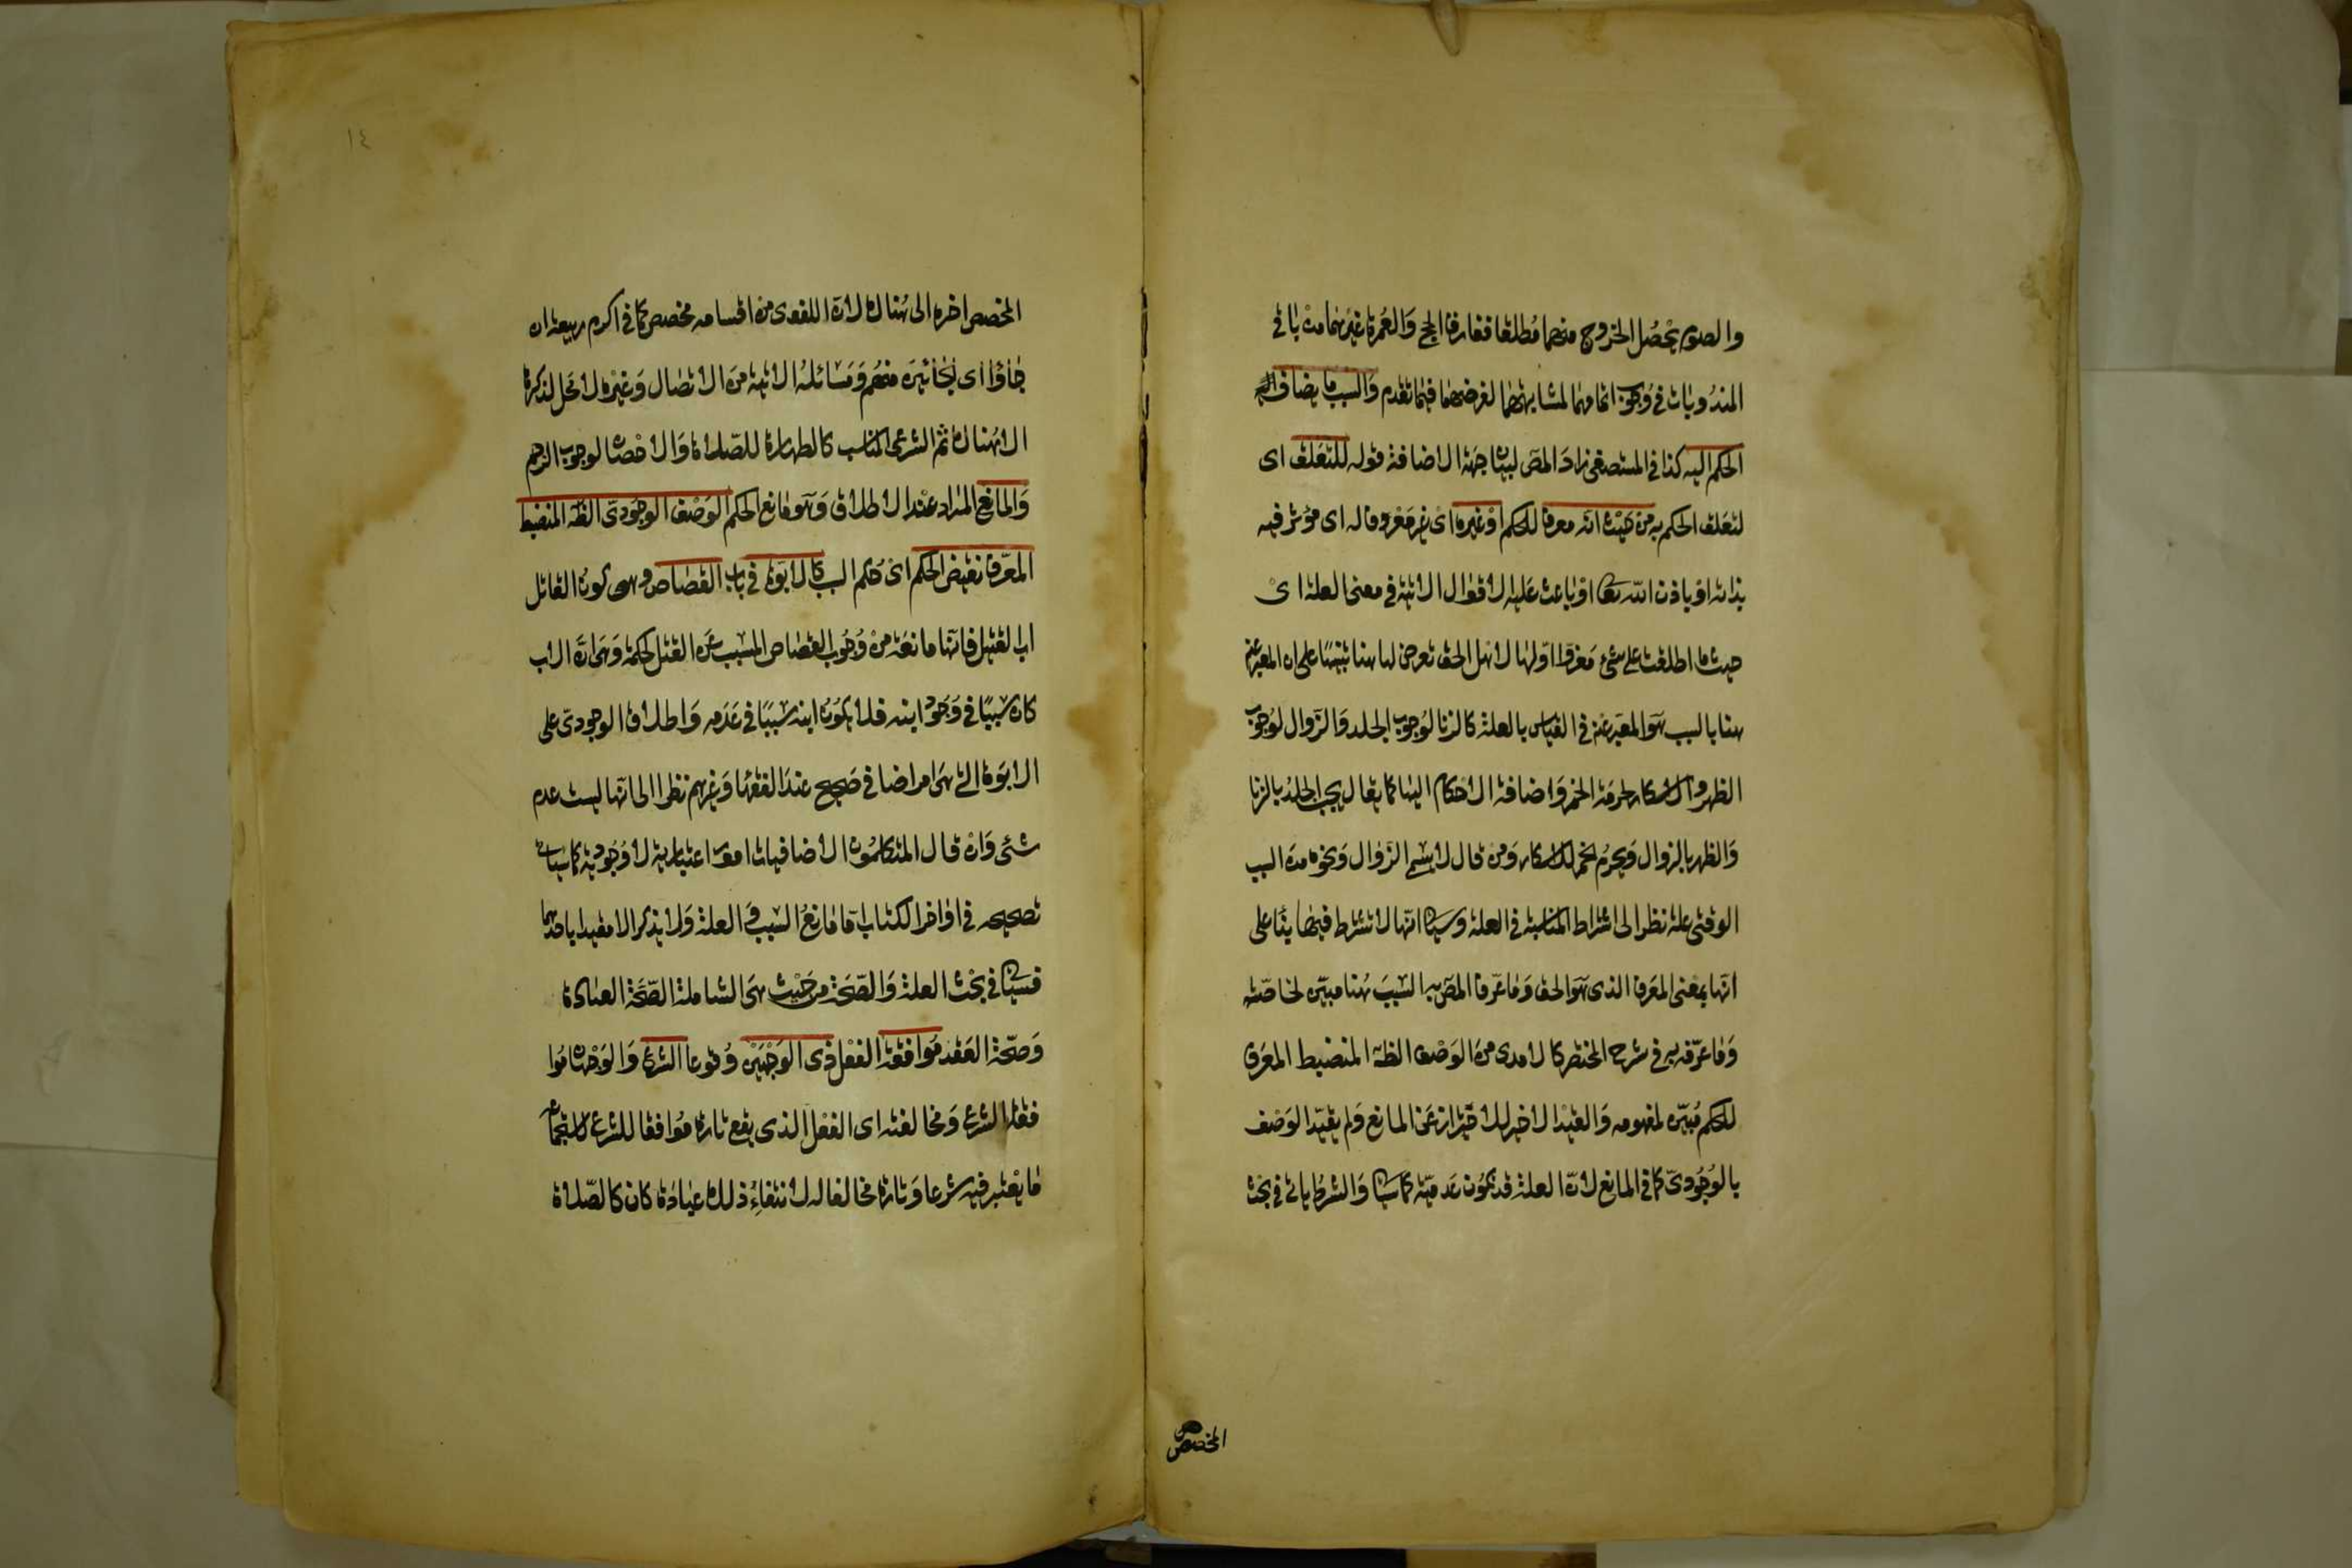 والصوم يحصل الخروج منهما مطلقا ففارق الحج والعمرة غيرهما من باقى
المندوبات فى وجوب اتمامهما لمشابهتهما لفرضهما فيما تقدم والسبب ما يضاف
الحكم اليه كذا فى المستصفى زاد المص لبيان جهة الاضافة قوله للتعلق اى
لتعلق الحكم به من حيث انه معرف للحكم او غيره اى غير معرف له اى مؤثر فيه
بذاته او باذن الله تعا او باعث عليه الاقوال الاتية فى معنى العلة اى
حيث ما اطلقت على شئ معزوا اولها لاهل الحق تعرض لها هنا تنبيها على ان المعبر عنه
هنا بالسبب هو المعبر عنه فى القياس بالعلة كالزنا لوجوب الجلد والزوال لوجوب
الظهر والاسكار لحرمة الخمر واضافة الاحكام اليها كما يقال يجب الجلد بالزنا
والظهر بالزوال ويحرم الخمر للاسكار ومن قال لا يسمى الزوال ونحوه من السبب
الوقتى علة نظرا الى اشتراط المناسبة فى العلة وسيا انها لا تشترط فيها بنا على
انها بمعنى المعرف الذى هو الحق وما عرف المص به السبب هنا مبين لخاصته
وما عرفه به فى شرح المختصر كالامدى من الوصف الظه المنضبط المعرف
للحكم مبين لمفهومه والقيد الاخير للاحتراز عن المانع ولم يقيد الوصف
بالوجودى كما فى المانع لان العلة قد تكون عدمية كما سيا والشرط ياتى فى بحث
المخصص
١٤
المخصص اخره الى هناك لان اللغوى من اقسامه مخصص كما فى اكرم ربيعة ان
جاؤا اى الجائين منهم ومسائله الاتية من الاتصال وغيره لا محل لذكرها
الا هناك ثم الشرعى المناسب كالطهارة للصلاة والاحصان لوجوب الرجم
والمانع المراد عند الاطلاق وهو مانع الحكم الوصف الوجودى الظه المنضبط
المعرف نقيض الحكم اى حكم السبب كالابوة فى باب القصاص وهى كون القاتل
اب القتيل فانها مانعة من وجوب القصاص المسبب عن القتل لحكمة وهى ان الاب
كان سببا فى وجود ابنه فلا يكون ابنه سببا فى عدمه واطلاق الوجودى على
الابوة التى هى امر اضافى صحيح عند الفقها وغيرهم نظرا الى انها ليست عدم
شئ وان قال المتكلمون الاضافيات امور اعتبارية لا وجودية كما سيات
تصحيحه فى اواخر الكتاب اما مانع السبب والعلة ولا يذكر الا مقيدا باحدهما
فسيا فى بحث العلة والصحة من حيث هى الشاملة لصحة العبادة
وصحة العقد موافقة الفعل ذى الوجهين وقوعا الشرع والوجهان موا
فقة الشرع ومخالفته اى الفعل الذى يقع تارة موافقا للشرع لاستجماع
ما يعتبر فيه شرعا وتارة مخالفا له لانتفاء ذلك عبادة كان كالصلاة